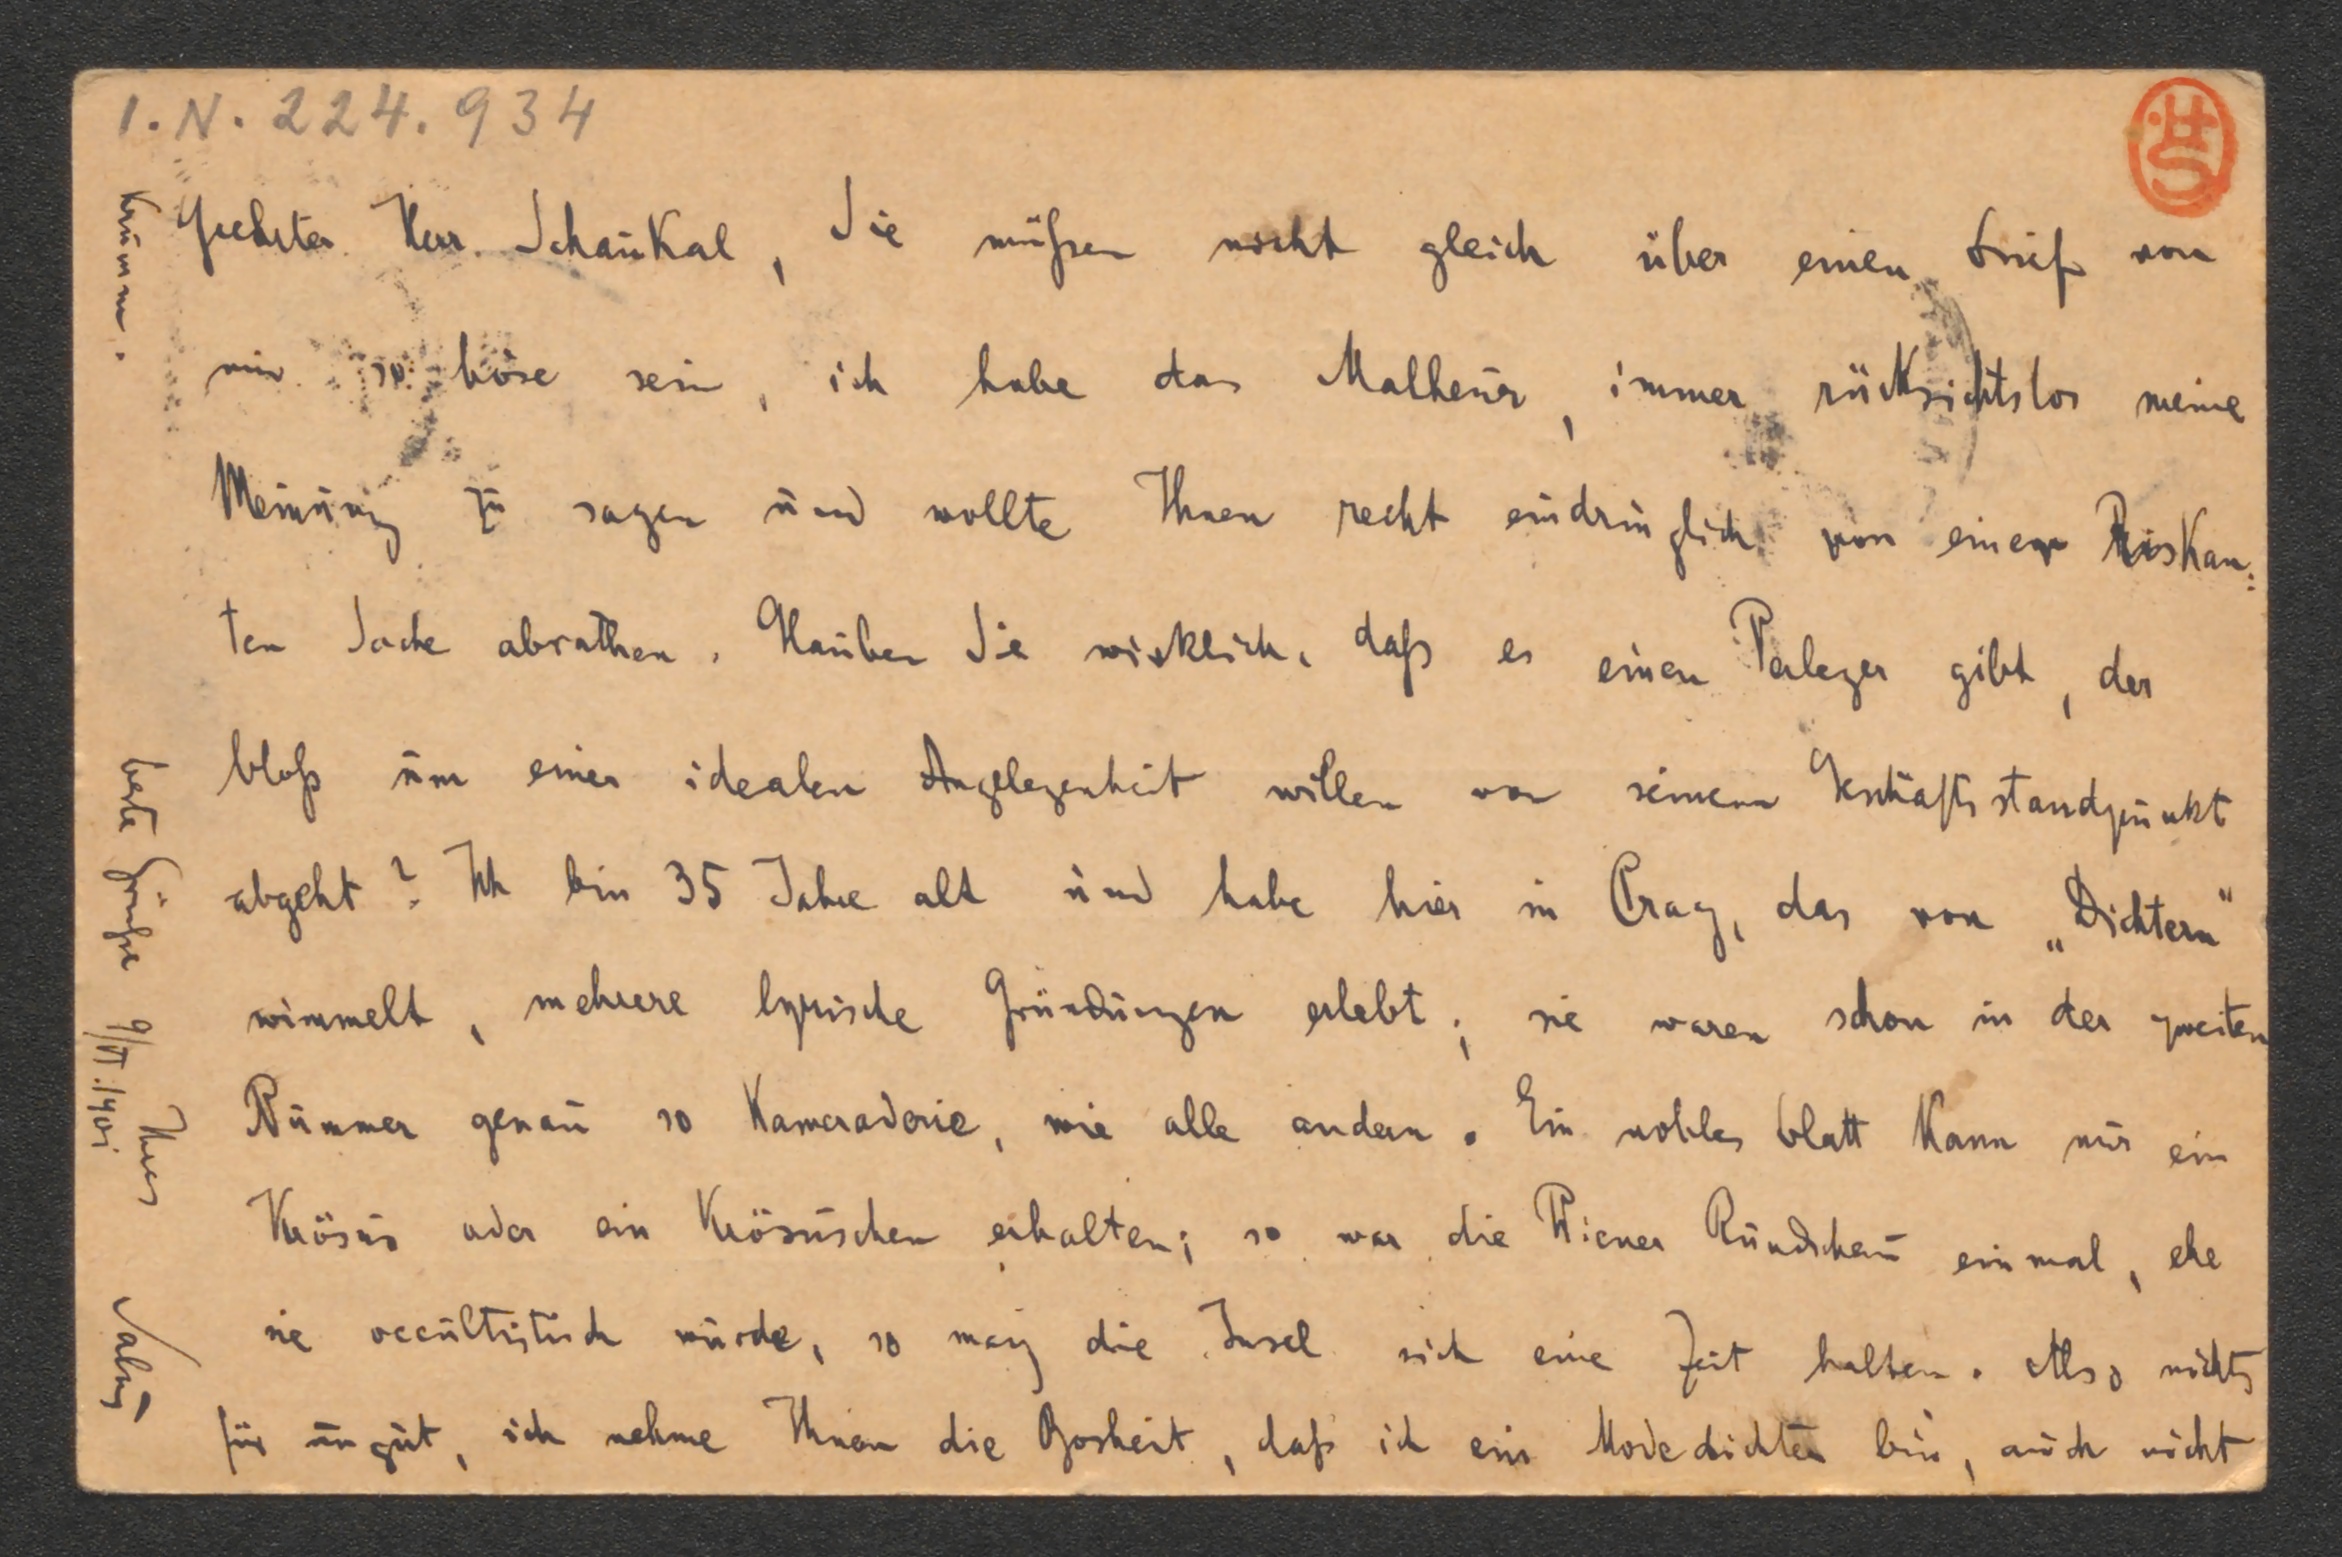 I.N. 224.934
Geehrter Herr Schaukal, Sie müßen nicht gleich über einen Brief von
mir so böse sein, ich habe das Malheur, immer rücksichtslos meine
Meinung zu sagen und wollte Ihnen recht eindringlich von einer Riskan:
ten Sache abrathen. Glauben Sie wirklich, daß es einen Verleger gibt, der
bloß um einer idealen Angelegenheit willen von seinem Geschäftsstandpunkt
abgeht? Ich bin 35 Jahre alt und habe hier in Prag, das von „Dichtern"
wimmelt, mehrere lyrische Gründungen erlebt; sie waren schon in der zweiten
Nummer genau so Kameraderie, wie alle andern. Ein nobles Blatt kann nur ein
Krösus oder ein Krösuschen erhalten; so war die Wiener Rundschau einmal, ehe
sie occultistisch wurde, so mag die Insel sich eine Zeit halten. Also nichts
für ungut, ich nehme Ihnen die Bosheit, daß ich ein Modedichter bin, auch nicht
krumm.
beste Grüße 9/VI.1901
Ihres
Salus